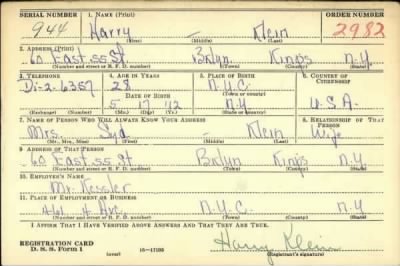 SERIAL NUMBER 1. NAME (Print) ORDER NUMBER
944 Harry – Klein 2982
(First) (Middle) (Last)
2. ADDRESS (Print)
60 East 55 St Bklyn. Kings N.Y.
(Number and street or R. F. D. number) (Town) (County) (State)
3. TELEPHONE 4. AGE IN YEARS 5. PLACE OF BIRTH 6. COUNTRY OF CITIZENSHIP
Di-2-6357 28 N.Y.C.
DATE OF BIRTH (Town or county)
5 17 '12 N.Y U.S.A.
(Exchange) (Number) (Mo.) (Day) (Yr.) (State or country)
7. NAME OF PERSON WHO WILL ALWAYS KNOW YOUR ADDRESS 8. RELATIONSHIP OF THAT PERSON
Mrs. Syd – Klein Wife
(Mr., Mrs., Miss) (First) (Middle) (Last)
9. ADDRESS OF THAT PERSON
60 East 55 St Bklyn Kings N.Y.
(Number and street or R. F. D. number) (Town) (County) (State)
10. EMPLOYER'S NAME
Mr. Kessler
11. PLACE OF EMPLOYMENT OR BUSINESS
461 4 Ave. N.Y.C. N.Y
(Number and street or R. F. D. number) (Town) (County) (State)
I AFFIRM THAT I HAVE VERIFIED ABOVE ANSWERS AND THAT THEY ARE TRUE.
REGISTRATION CARD
D. S. S. Form 1 (over) 16—17105 Harry Klein
(Registrant's signature)